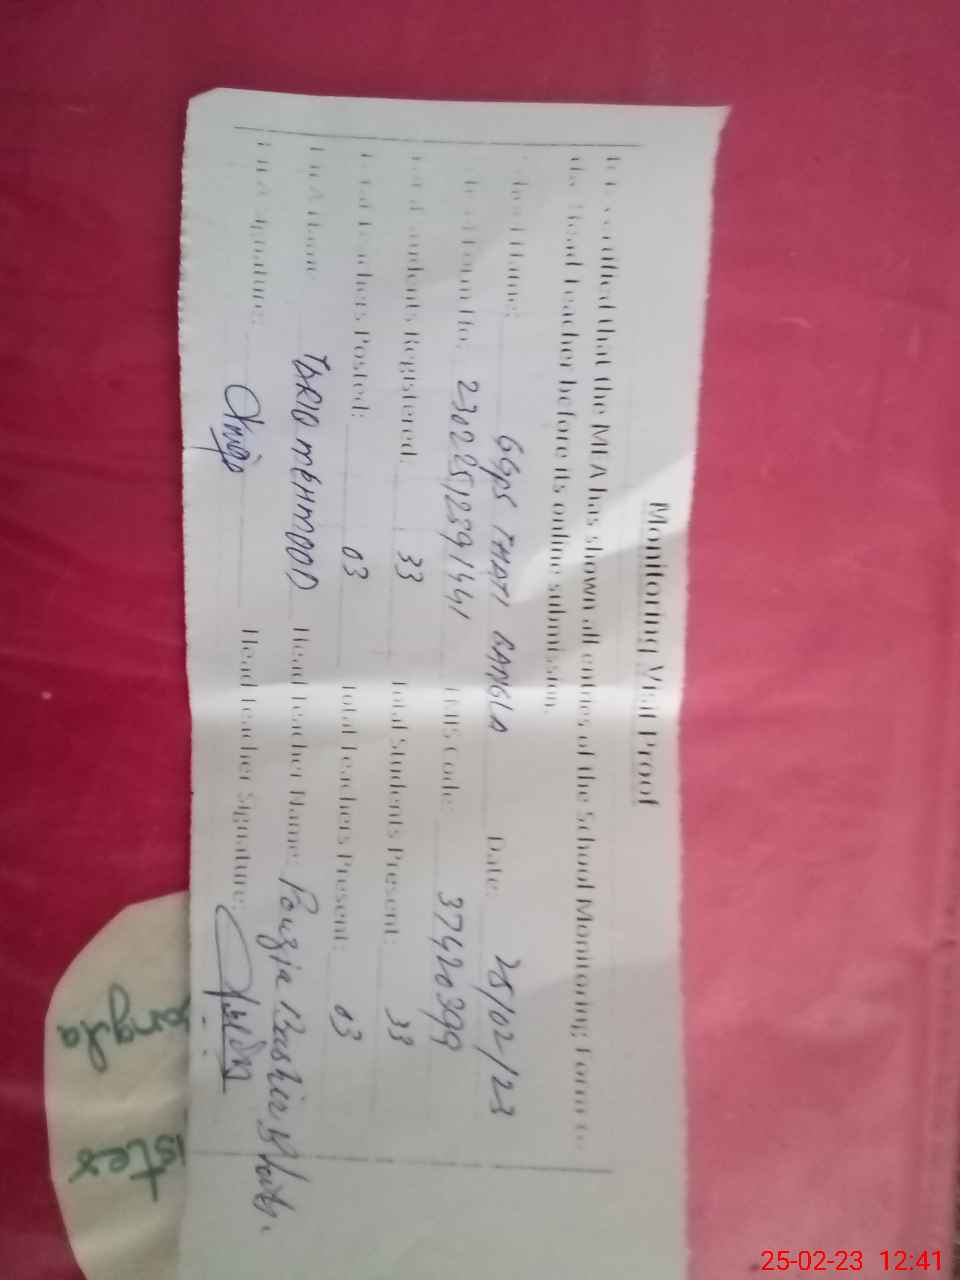 Monitoring Visit Proof
It is verified that the MEA has shown all entries of the School Monitoring Form to
the Head Teacher before its online submission.
School Name: GGPS THATI BANGLA Date: 25/02/23
Visit Form No: EMIS Code: 37420399
Total Students Registered: 33 Total Students Present: 33
Total Teachers Posted: 03 Total Teachers Present: 03
MEA Name: TARIQ MEHMOOD Head Teacher Name: Bashir
MEA Signature: Head Teacher Signature:
angla
ister
25-02-23 12:41